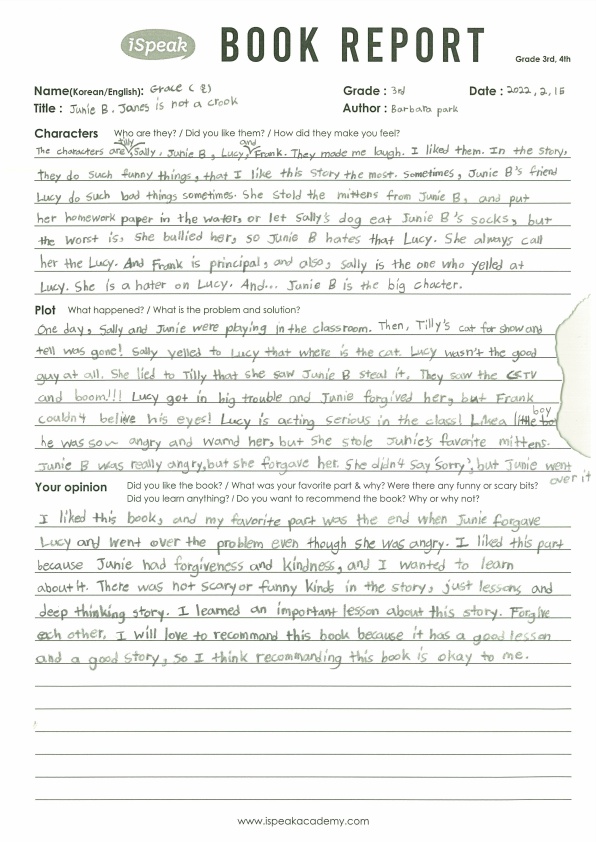 iSpeak BOOK REPORT
Grade 3rd, 4th
Name(Korean/English): Grace ( 왕) Grade : 3rd Date : 2022, 2, 15
Title : Junie B. Janes is not a crook Author : Barbara park
Characters Who are they? / Did you like them? / How did they make you feel?
tilly and
The characters are Sally, Junie B, Lucy, Frank. They made me laugh. I liked them. In the story,
they do such funny things, that I like this story the most. sometimes, Junie B's friend
Lucy do such bad things sometimes. She stold the mittens from Junie B, and put
her homework paper in the water, or let Sally's dog eat Junie B's socks, but
the worst is, she bullied her, so Junie B hates that Lucy. She always call
her the Lucy. And Frank is principal, and also, Sally is the one who yelled at
Lucy. She is a hater on Lucy. And... Junie B is the big chacter.
Plot What happened? / What is the problem and solution?
One day, Sally and Junie were playing in the classroom. Then, Tilly's cat for show and
tell was gone! Sally yelled to Lucy that where is the cat. Lucy wasn't the good
guy at all. She lied to Tilly that she saw Junie B steal it. They saw the CSTV
and boom!!! Lucy got in big trouble and Junie forgived her, but Frank
boy
couldn't belive his eyes! Lucy is acting serious in the class! Like a little
he was so~ angry and warnd her, but she stole Junie's favorite mittens.
Junie B was really angry, but she forgave her. She didn't say 'sorry', but Junie went
over it
Your opinion Did you like the book? / What was your favorite part & why? Were there any funny or scary bits?
Did you learn anything? / Do you want to recommend the book? Why or why not?
I liked this book, and my favorite part was the end when Junie forgave
Lucy and went over the problem even though she was angry. I liked this part
because Junie had forgiveness and kindness, and I wanted to learn
about it. There was not scary or funny kinds in the story, just lessons and
deep thinking story. I learned an important lesson about this story. Forgive
each other. I will love to recommand this book because it has a good lesson
and a good story, so I think recommanding this book is okay to me.
www.ispeakacademy.com